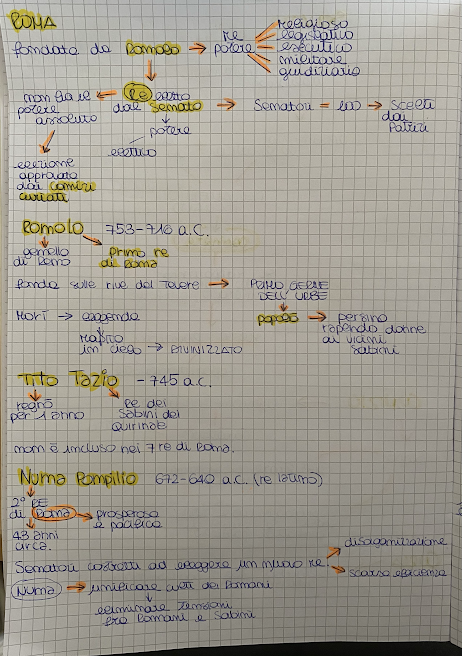 ROMA
fondata da Romolo → re
potere
religioso
legislativo
esecutivo
militare
giudiziario
non ha il ← Re eletto
potere dal Senato → Senatori = 100 → scelti
assoluto dai
Patrizi
potere
elettivo
elezione
approvata
dai comizi
curiati
Romolo 753-716 a.C.
gemello primo re
di Remo di Roma
Fonda sulle rive del Tevere → PRIMO GERME
DELL'URBE
popolò → persino
rapendo donne
ai vicini
Sabini
MORÌ → leggenda
RAPITO
in cielo → DIVINIZZATO
Tito Tazio - 745 a.C.
regnò Re dei
per 1 anno Sabini del
QUIRINALE
non è incluso nei 7 re di Roma.
Numa Pompilio 672-640 a.C. (re latino)
2° RE
di Roma → prospera
e pacifica
43 anni
circa.
Senatori costretti ad eleggere un nuovo re
disorganizzazione
scarsa efficienza
Numa → unificare culti dei Romani
eliminare tensioni
fra Romani e Sabini